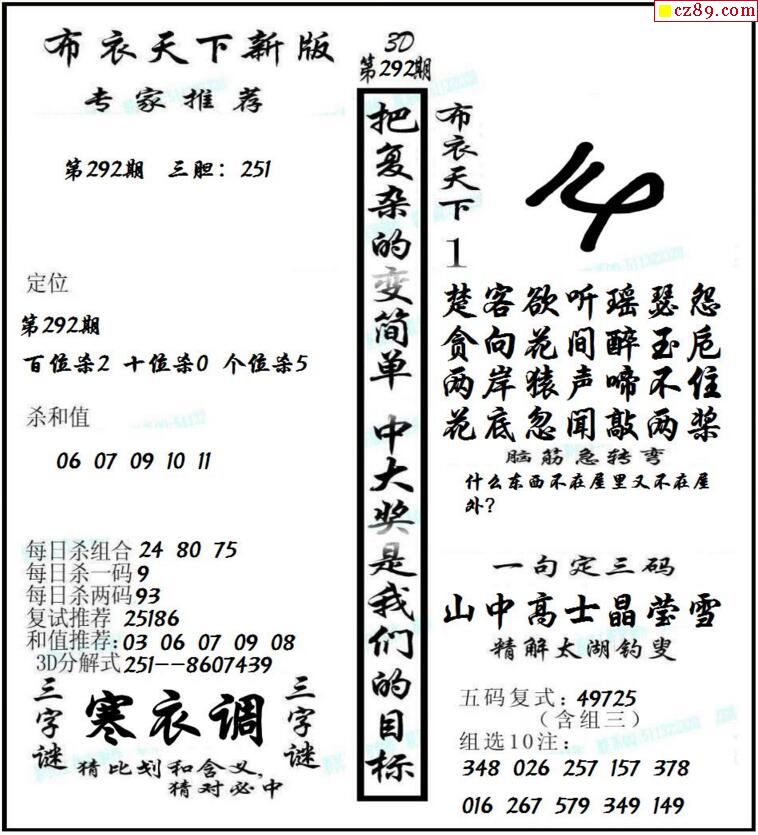 cz89.com
布衣天下新版
专家推荐
第292期 三胆：251
定位
第292期
百位杀2 十位杀0 个位杀5
杀和值
06 07 09 10 11
每日杀组合 24 80 75
每日杀一码 9
每日杀两码 93
复试推荐 25186
和值推荐：03 06 07 09 08
3D分解式 251--8607439
三字谜
寒衣调
三字谜
猜比划和含义，
猜对必中
3D
第292期
把复杂的变简单 中大奖是我们的目标
布衣天下1
14
楚客欲听瑶瑟怨
贪向花间醉玉卮
两岸猿声啼不住
花底忽闻敲两桨
脑筋急转弯
什么东西不在屋里又不在屋
外？
一句定三码
山中高士晶莹雪
精解太湖钓叟
五码复式：49725
（含组三）
组选10注：
348 026 257 157 378
016 267 579 349 149